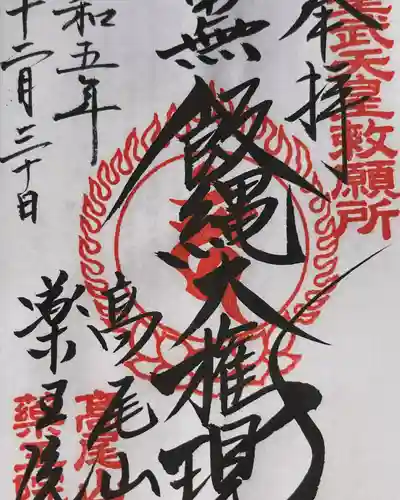 武天皇敕願所
奉拝
無飯縄大権現
髙尾山
薬王院
和五年
十二月三十日
高尾山
藥王院